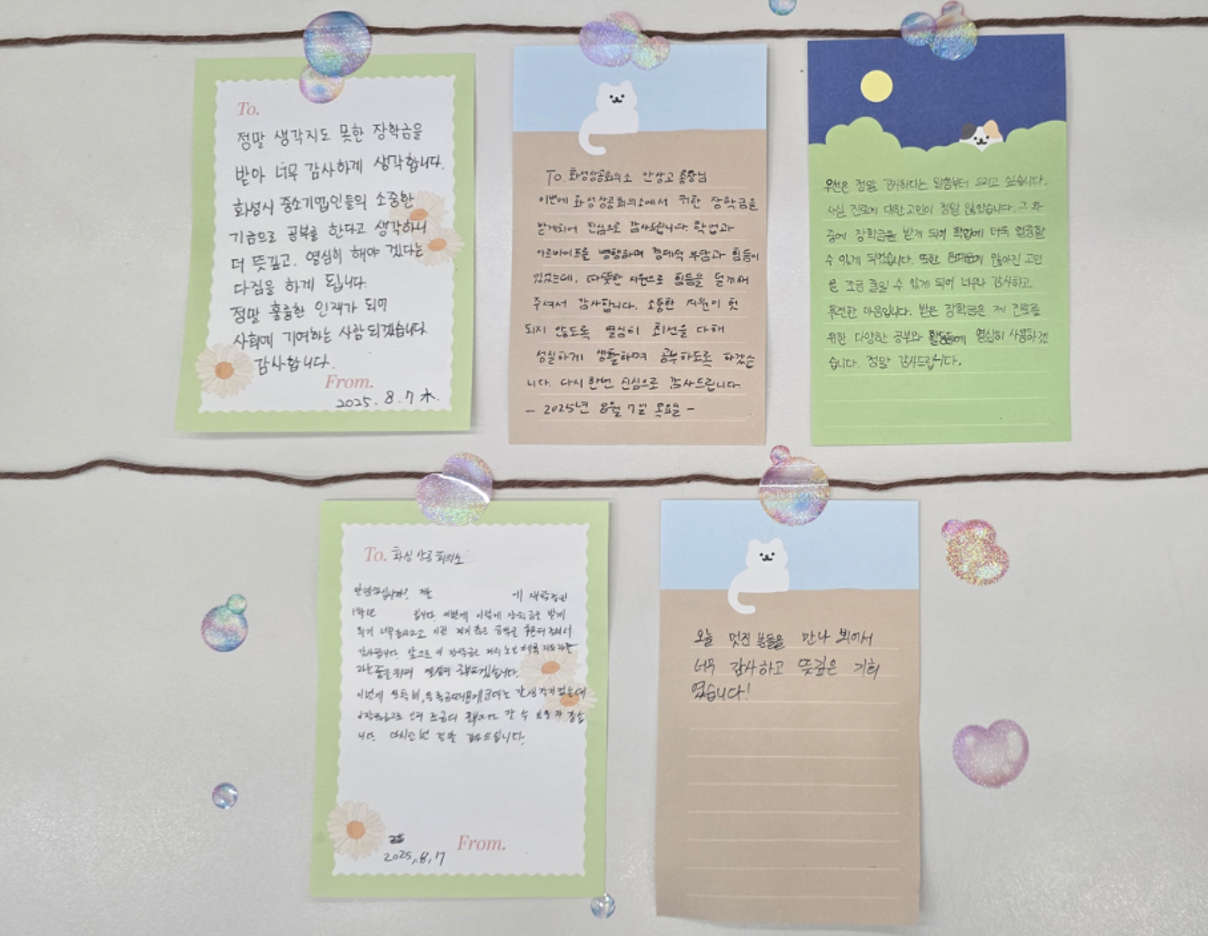 To.
정말 생각지도 못한 장학금을
받아 너무 감사하게 생각합니다.
화성시 중소기업인들의 소중한
기금으로 공부를 한다고 생각하니
더 뜻깊고, 열심히 해야 겠다는
다짐을 하게 됩니다.
정말 훌륭한 인재가 되어
사회에 기여하는 사람 되겠습니다.
감사합니다.
From.
2025. 8. 7 木.
To 화성상공회의소 안상교 회장님
이번에 화성상공회의소에서 귀한 장학금을
받게되어 진심으로 감사드립니다. 학업과
아르바이트를 병행하며 경제적 부담과 힘듦이
있었는데, 따뜻한 지원으로 힘듦을 덜게해
주셔서 감사합니다. 소중한 지원이 헛
되지 않도록 열심히 최선을 다해
성실하게 생활하며 공부하도록 하겠습
니다. 다시 한번 진심으로 감사드립니다.
- 2025년 8월 7일 목요일 -
우선은 정말 감사하다는 말씀부터 드리고 싶습니다.
사실 진로에 대한 고민이 정말 많았습니다. 그 와
중에 장학금을 받게 되어 학업에 더욱 열중할
수 있게 되었습니다. 또한 많아진 고민
을 조금 줄일 수 있게 되어 너무나 감사하고
마음입니다. 받은 장학금은 제 진로를
위한 다양한 공부와 활동들에 열심히 사용하겠
습니다. 정말 감사드립니다.
To. 화성상공회의소
안녕하십니까! 저는 에 재학중인
1학년 입니다. 이번에 이렇게 장학금을 받게
되어 너무 이런 좋은
감사합니다. 앞으로 이 장학금은 저의
위해 열심히
이번에
이 장학금으로 조금 더 갈 수 있을것 같습
니다. 다시한번 정말 감사드립니다.
From.
2025. 8. 7
오늘 멋진 분들을 만나 뵈어서
너무 감사하고 뜻깊은 기회
였습니다!